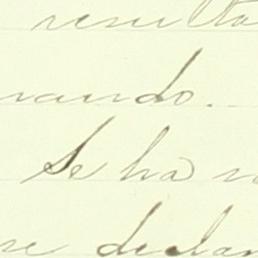 resulta
nando.
Se ha
se declar